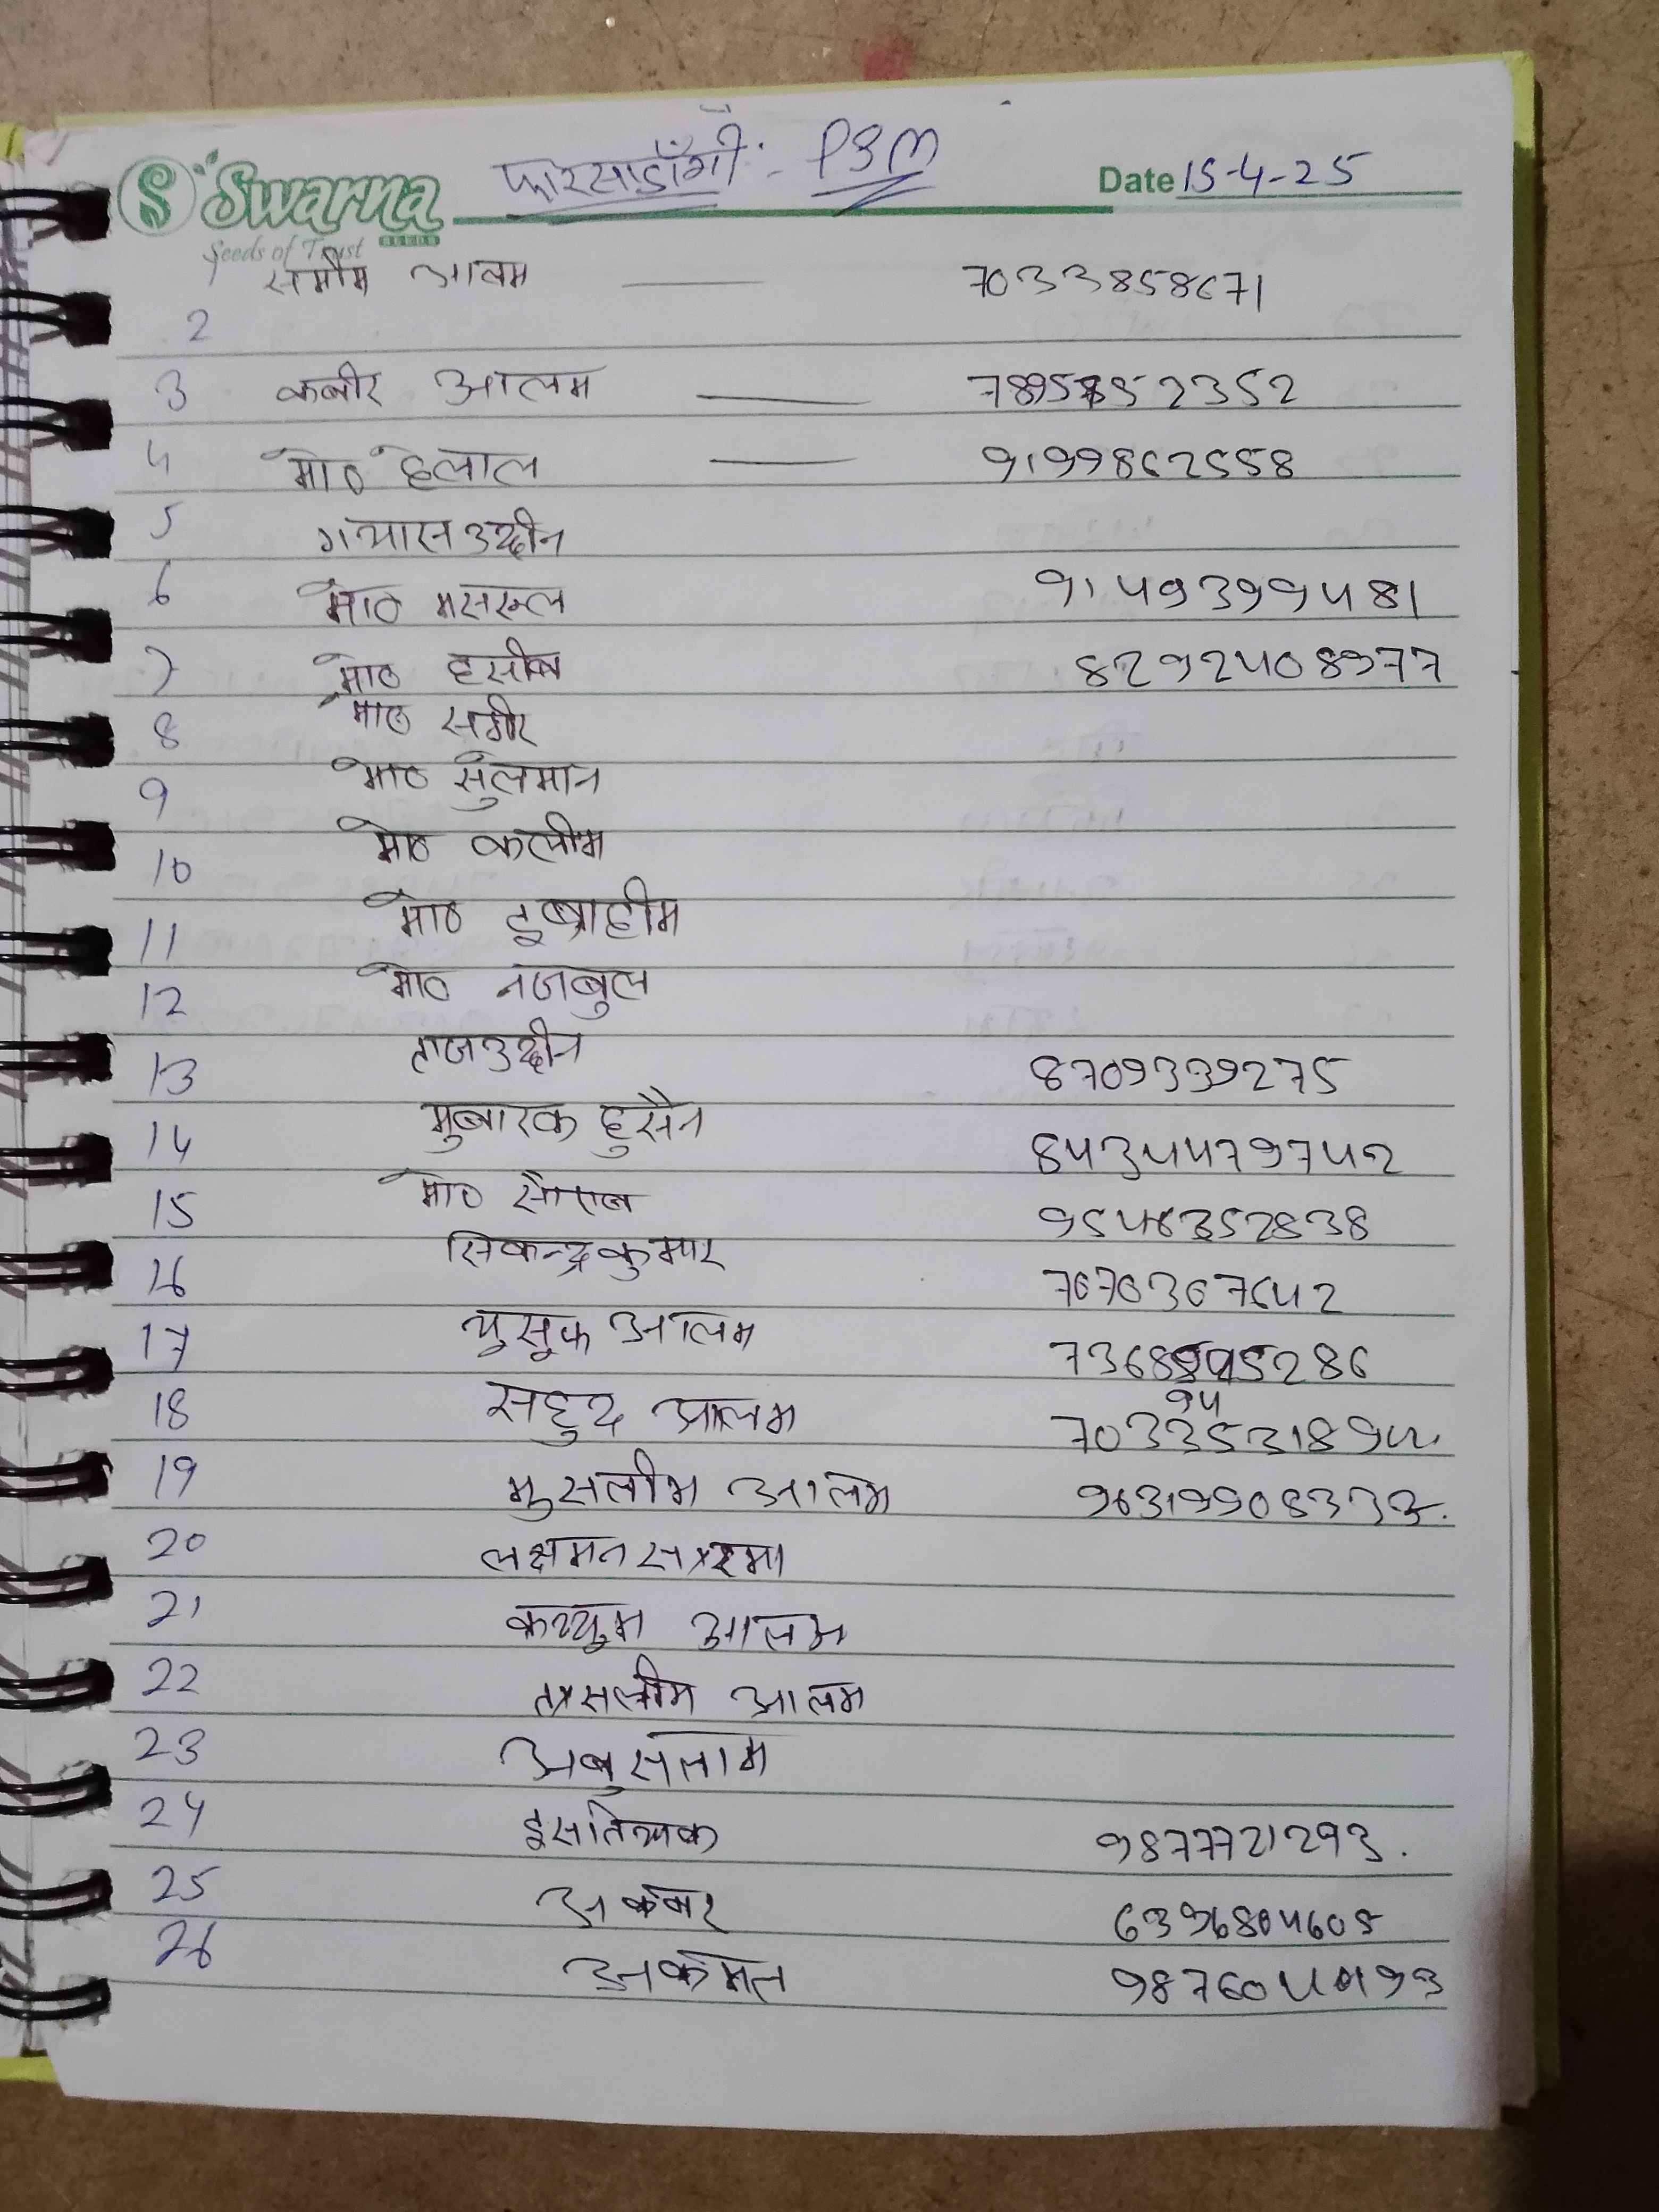 Swarna फारसाडाँगी:- PSM Date 15-4-25
Seeds of Trust SEEDS
1 समीम आलम — 7033858671
2
3 कबीर आलम —
4 मो० हेलाल — 9199862558
5 गयासउद्दीन
6 मो० मसरूल 9149399481
7 मो० हसीब 8292408977
8 मो० सगीर
9 मो० सुलमान
10 मो० कलीम
11 मो० इब्राहीम
12 मो० नजबुल
13 ताजउद्दीन 8709339275
14 मुबारक हुसैन 8434479742
15 मो० सैराब
16 सिकन्द्र कुमार 7676367642
17 युसूफ आलम
18 सहुद आलम
19 मुसलीम आलम 96319908333.
20 लक्षमन सरमा
21 कय्युम आलम
22 तसलीम आलम
23 अबुसलाम
24 इसतियाक 9877721293.
25 अकबर
26